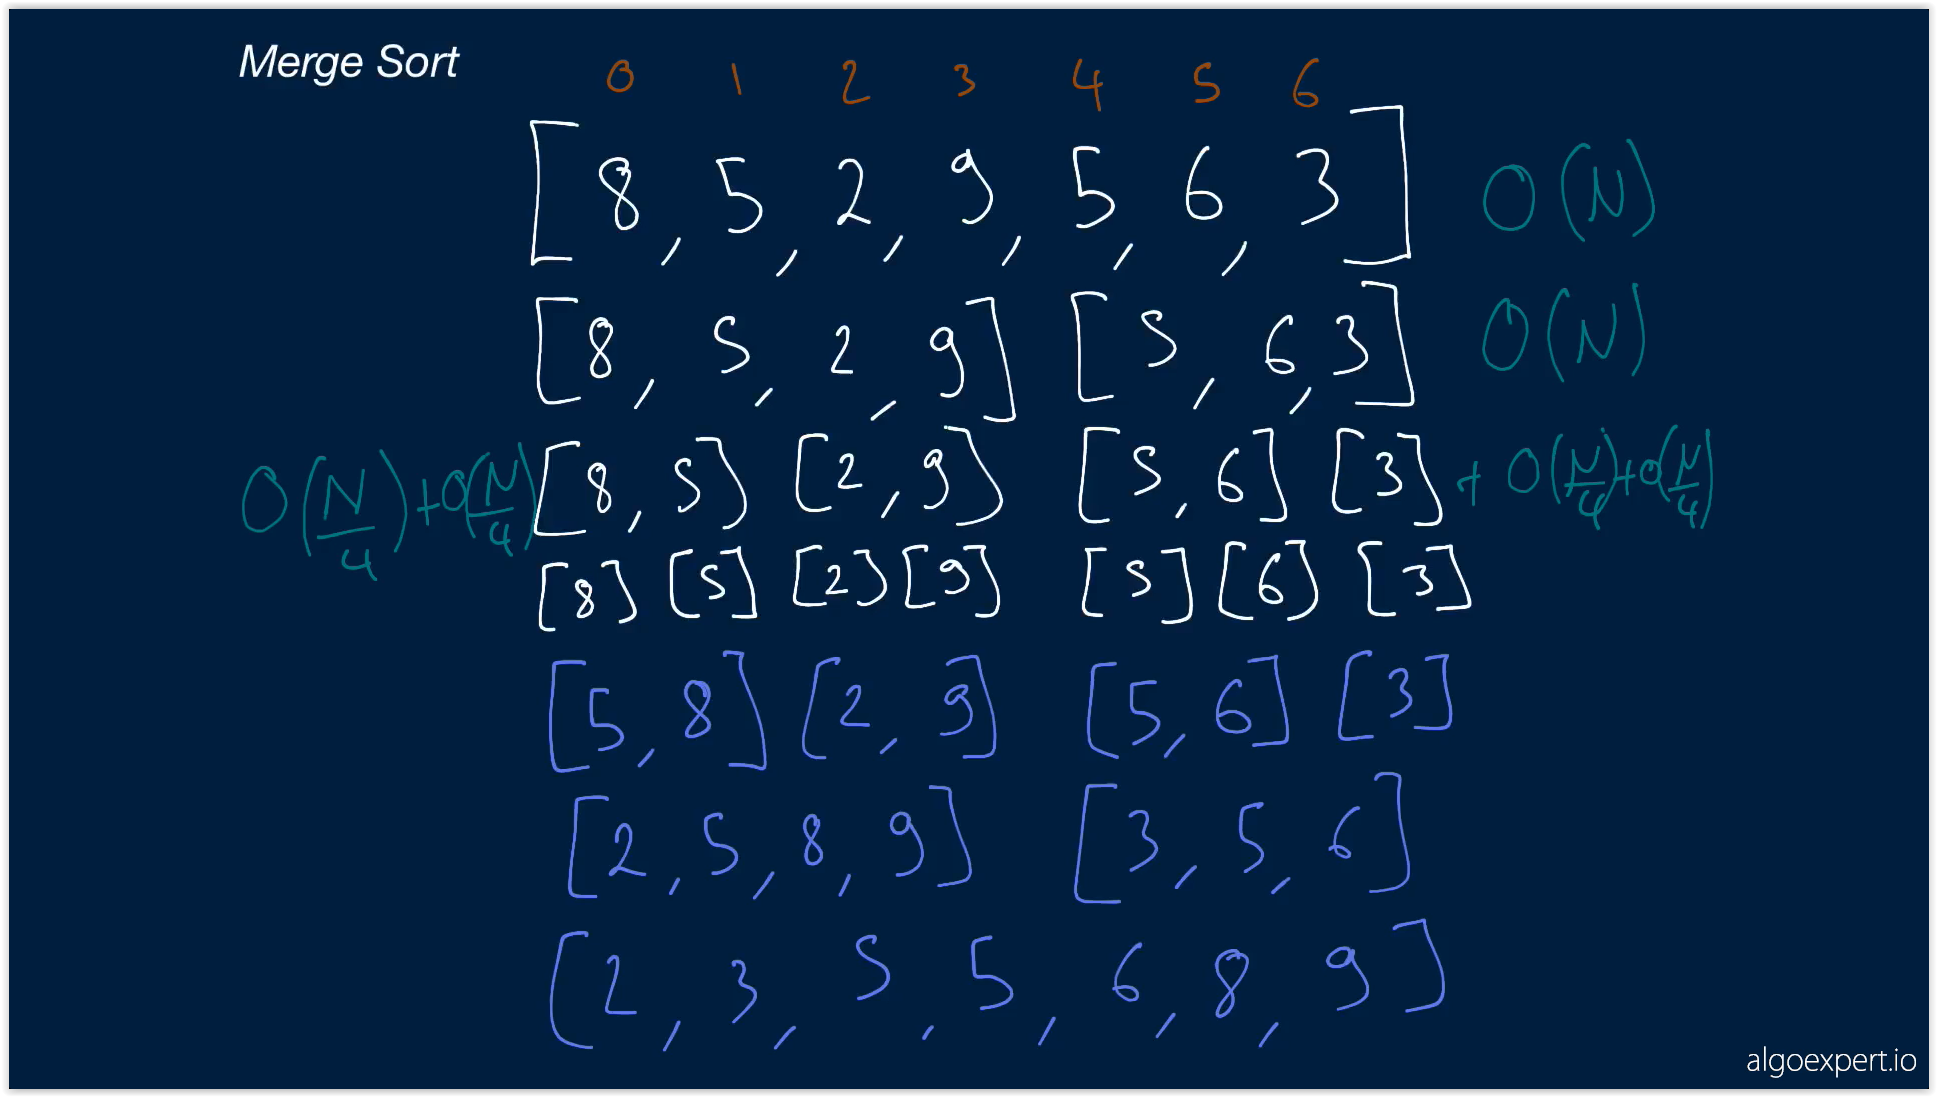 Merge Sort
0 1 2 3 4 5 6
[8, 5, 2, 9, 5, 6, 3] O(N)
[8, 5, 2, 9] [5, 6, 3] O(N)
O(N/4)+O(N/4) [8, 5] [2, 9] [5, 6] [3] + O(N/4)+O(N/4)
[8] [5] [2] [9] [5] [6] [3]
[5, 8] [2, 9] [5, 6] [3]
[2, 5, 8, 9] [3, 5, 6]
[2, 3, 5, 5, 6, 8, 9]
algoexpert.io